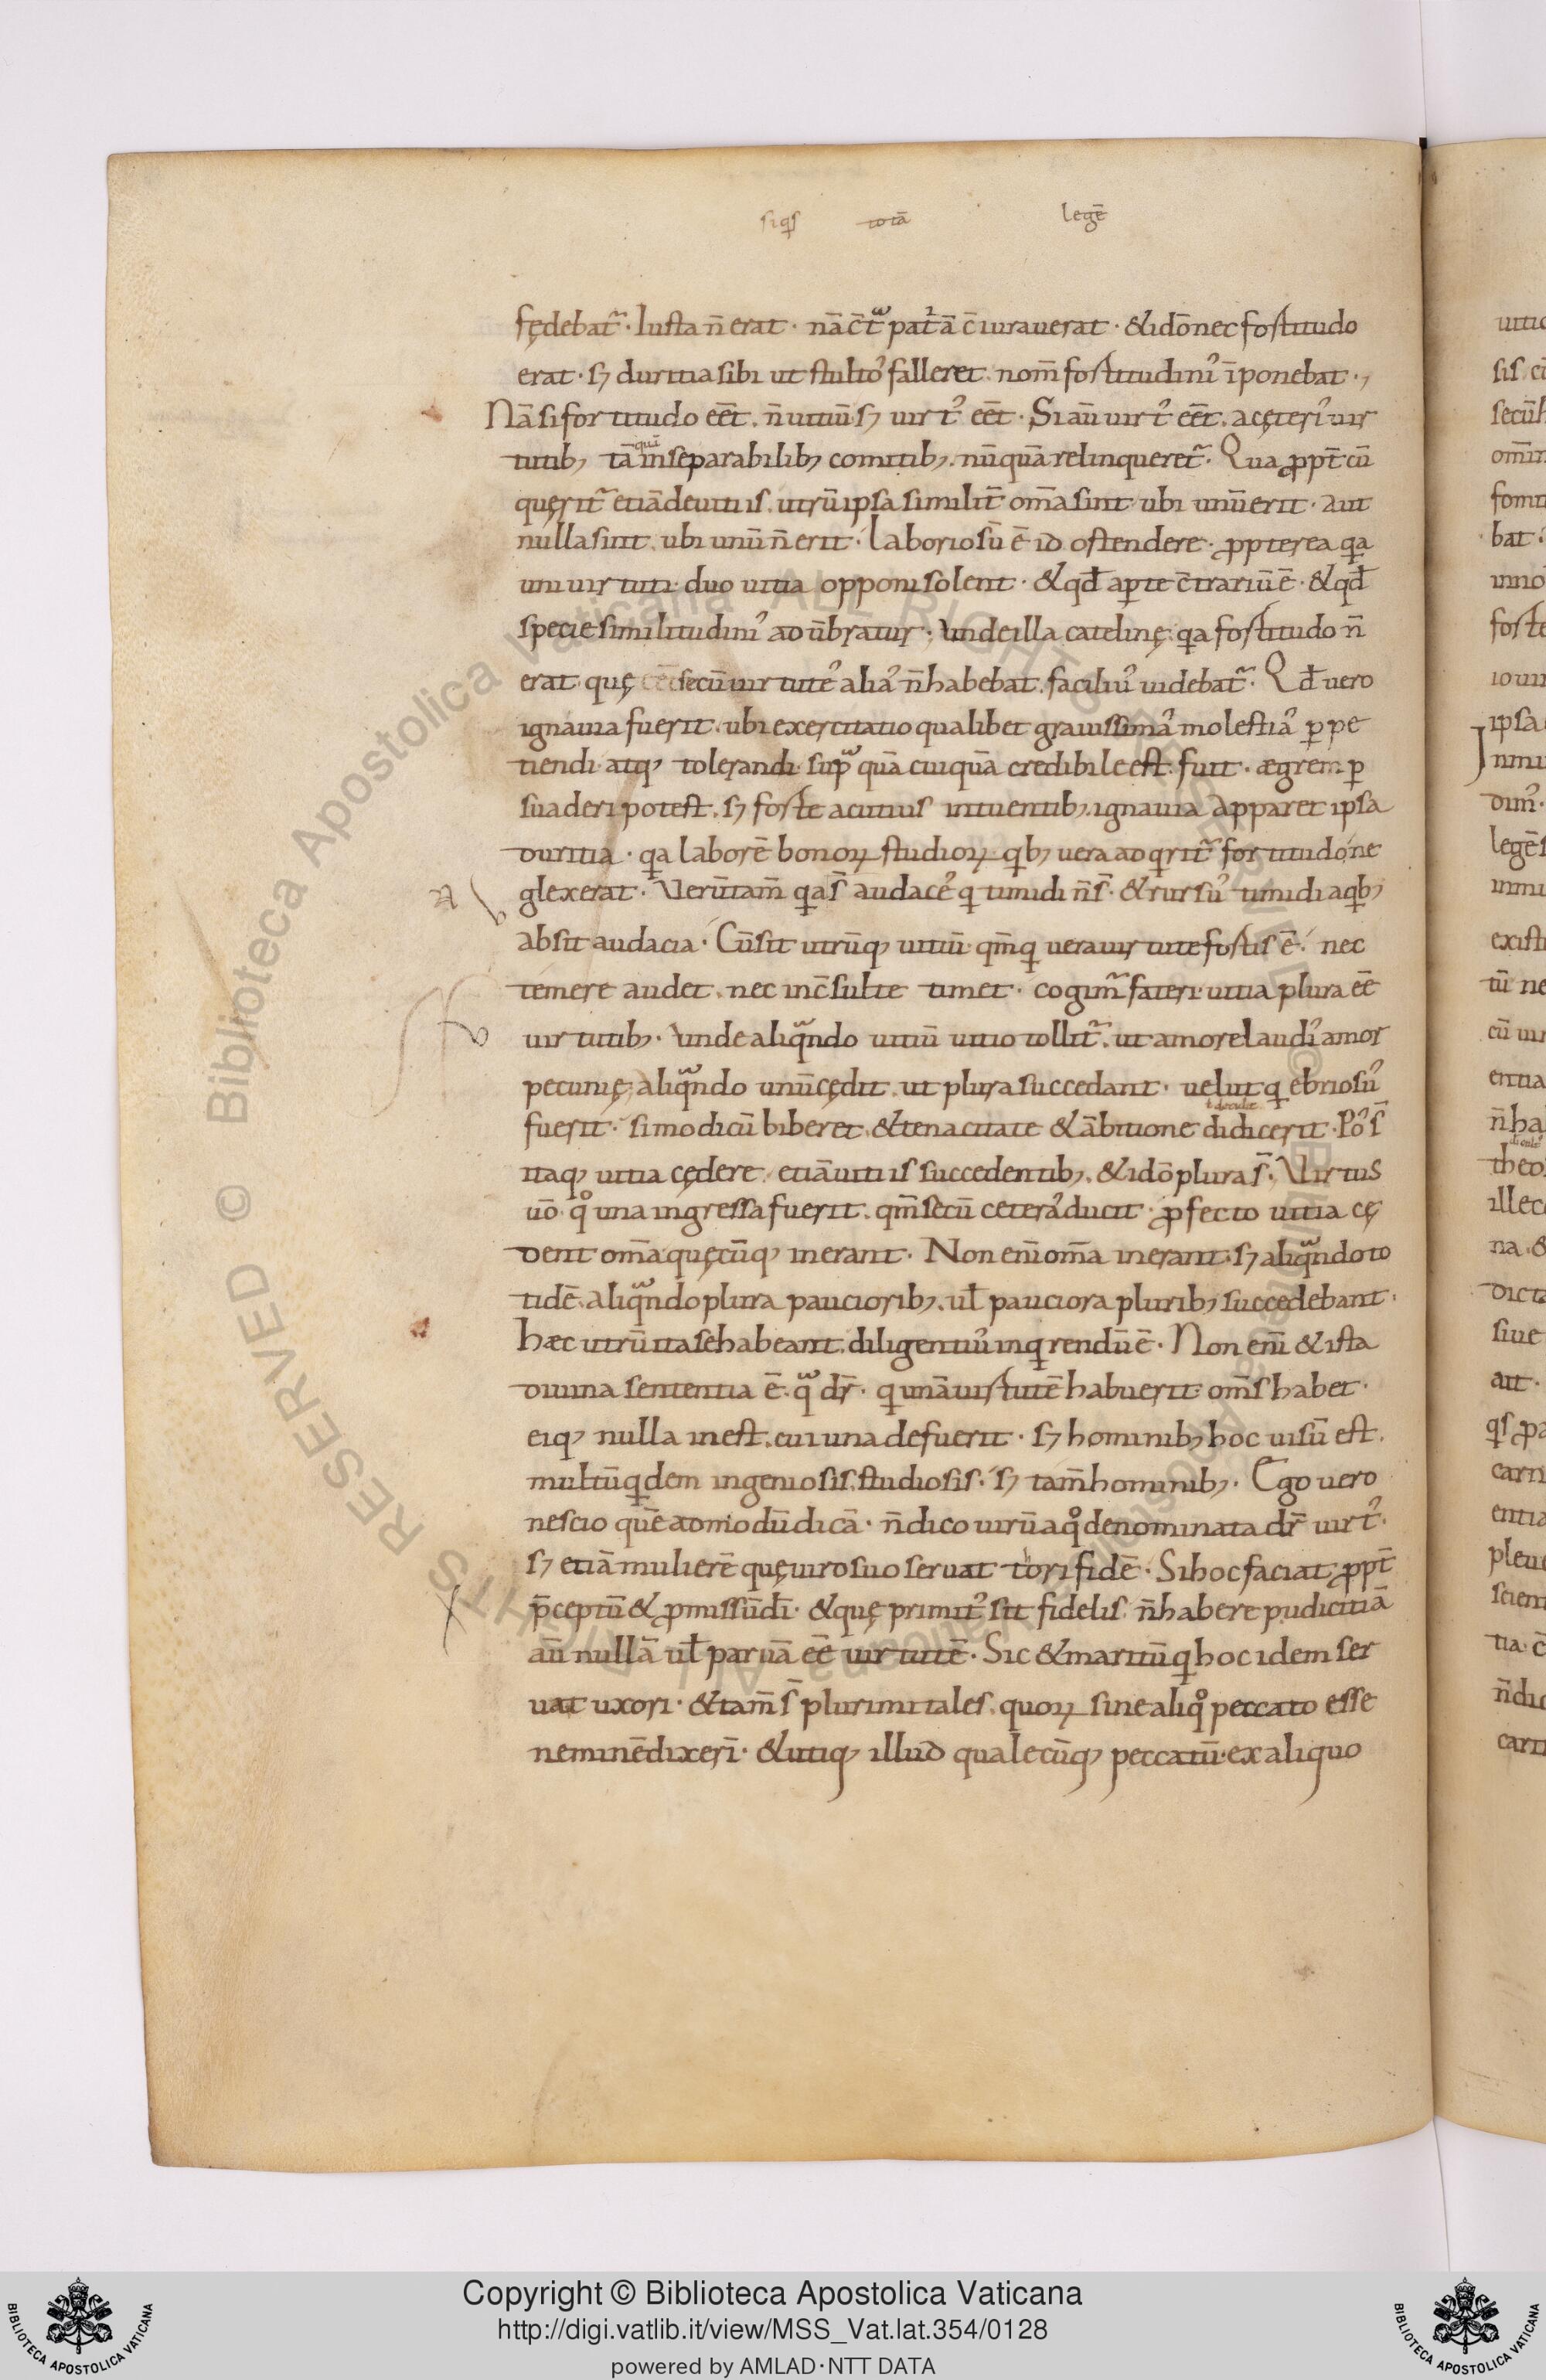 siq̄s totā legē
sędebat᷑. Iusta n̄ erat. nā c̄tᷓ pat'ā c̄iurauerat. & idō nec fortitudo
erat. sꝫ duritia sibi ut stulto᾿ falleret. nom̄ fortitudini᾿ īponebat.,
Nā si fortitudo eēt. n̄ uitiū sꝫ uirt᾿ eēt. Si aū uirt᾿ eēt. a cęteri᾿ uir
tutibꝫ tāquā inseparabilibꝫ comitibꝫ. nūquā relinqueret᷑. Qua ꝓpt̄ cū
quęrit᷑ etiā de uitiis. utrū ipsa similit̄ om̄a sint ubi unū erit. aut
nulla sint. ubi unū n̄ erit. Laboriosū ē id ostendere. ꝓpterea qa
uni uirtuti. duo uitia opponi solent. & qđ aꝑte c̄trariū ē. & qđ
specie similitudini᾿ adūbratur. Unde illa catelinę. qa fortitudo n̄
erat quę secū uirtute᾿ alia᾿ n̄ habebat. faciliu᾿ uidebat᷑. Qđ uero
ignauia fuerit. ubi exercitatio qualibet grauissima᾿ molestia᾿ ꝑpe
tiendi atqꝫ tolerandi supᷓ quā cuiquā credibile est. fuit. ægrem ꝑ
suaderi potest. sꝫ forte acutius intuentibꝫ. ignauia apparet ipsa
duritia. qa laborē bonoꝝ studioꝝ qbꝫ uera adqrit᷑ fortitudo, ne
glexerat. Verūtam̄ qa s̄ audace᾿ q timidi n̄ s̄. & rursu᾿ timidi a qbꝫ
absit audacia. Cū sit utrūqꝫ uitiū. qm̄ q uera uirtute fortis ē. nec
temere audet. nec inc̄sulte timet. cogim᷑ fateri uitia plura eē
uirtutibꝫ. Unde aliqᷓndo uitiū uitio tollit᷑. ut amore laudi᾿ amor
pecunię. aliqᷓndo unū cędit. ut plura succedant. uelut q ebriosu᾿
ł docuit
fuerit. si modicū biberet. & tenacitate & ābitione didicerit. Po᾿s̄
itaqꝫ uitia cędere. etiā uitiis succedentibꝫ. & idō plura s̄. Virtus
uō. qͦ una ingressa fuerit. qm̄ secū cetera᾿ ducit. ꝓfecto uitia cę
dent om̄a quęcūqꝫ inerant. Non eni᷑ om̄a inerant. sꝫ aliqᷓndo to
tidē. aliqᷓndo plura paucioribꝫ. uł pauciora pluribꝫ succedebant.
Hæc utrū ita se habeant. diligentiu᾿ inqrendū ē. Non eni᷑ & ista
diuina sententia ē. qᷓ dr̄. q unā uirtutē habuerit om̄s habet.
eiqꝫ nulla inest. cui una defuerit. sꝫ hominibꝫ hoc uisū est.
multū qdem ingeniosis. studiosis. sꝫ tam̄ hominibꝫ. Ego uero
nescio quē admodū dicā. n̄ dico uirū a qͦ denominata dr̄ uirt᾿.
sꝫ etiā mulierē quę uiro suo seruat tori fidē. Si hoc faciat ꝓpt̄
p̄ceptū & ꝓmissū dī. & quę primit᾿ sit fidelis. n̄ habere pudicitiā
aū nullā uł paruā eē uirtutē. Sic & maritū q hoc idem ser
uat uxori. & tam̄ s̄ plurimi tales. quoꝝ sine aliqͦ peccato esse
neminē dixeri᷑. & utiqꝫ illud qualecūqꝫ peccatū. ex aliquo
Copyright © Biblioteca Apostolica Vaticana
http://digi.vatlib.it/view/MSS_Vat.lat.354/0128
powered by AMLAD·NTT DATA